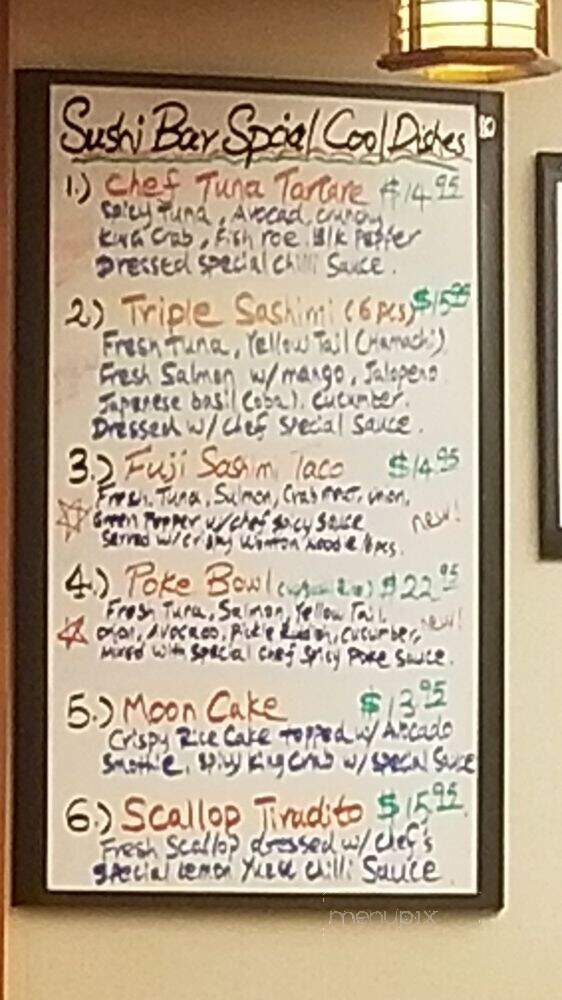 Sushi Bar Spcial Cool Dishes
1.) Chef Tuna Tartare $14.95
Spicy Tuna, Avocad, crunchy
King Crab, Fish roe. Blk Pepper
Dressed special chilli Sauce.
2.) Triple Sashimi (6 pcs) $15.95
Fresh Tuna, Yellow Tail (Hamachi)
Fresh Salmon w/mango, Jalopeno
Japanese basil (oba). cucumber.
Dressed w/ chef Special Sauce.
3.) Fuji Sashimi Taco $14.95
Fresh Tuna, Salmon, Crab meat, onion,
Green Pepper w/chef spicy Sauce new!
Served w/crispy wonton noodle 6pcs.
4.) Poke Bowl $22.95
Fresh Tuna, Salmon, Yellow Tail, new!
onion, Avocado, Pickle Radish, cucumber,
mixed with special chef Spicy Poke Sauce.
5.) Moon Cake $13.95
Crispy Rice Cake topped w/ Avocado
Smothie, Spicy King Crab w/ special Sauce
6.) Scallop Tiradito $15.95
Fresh Scallop dressed w/ chef's
special lemon Yuzu chilli Sauce
menupix